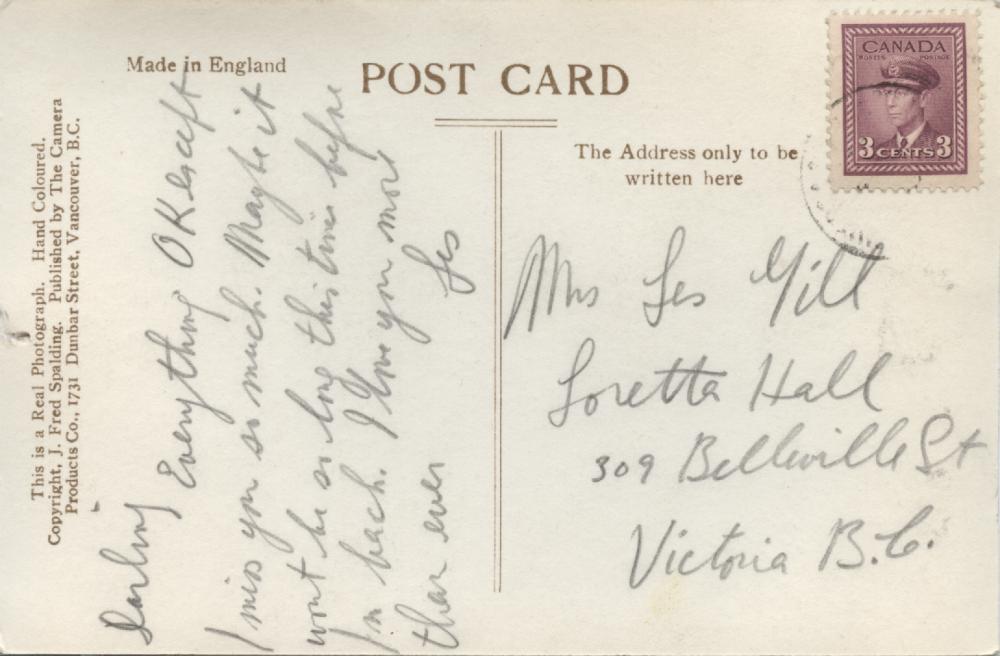 Made in England
POST CARD
This is a Real Photograph. Hand Coloured.
Copyright, J. Fred Spalding. Published by The Camera
Products Co., 1731 Dunbar Street, Vancouver, B.C.
The Address only to be
written here
CANADA
POSTES POSTAGE
3 CENTS 3
Darling
Everything OK except
I miss you so much. Maybe it
wont be so long this time before
Im back. I love you more
than ever
Les
Mrs Les Gill
Loretta Hall
309 Belleville St
Victoria B.C.